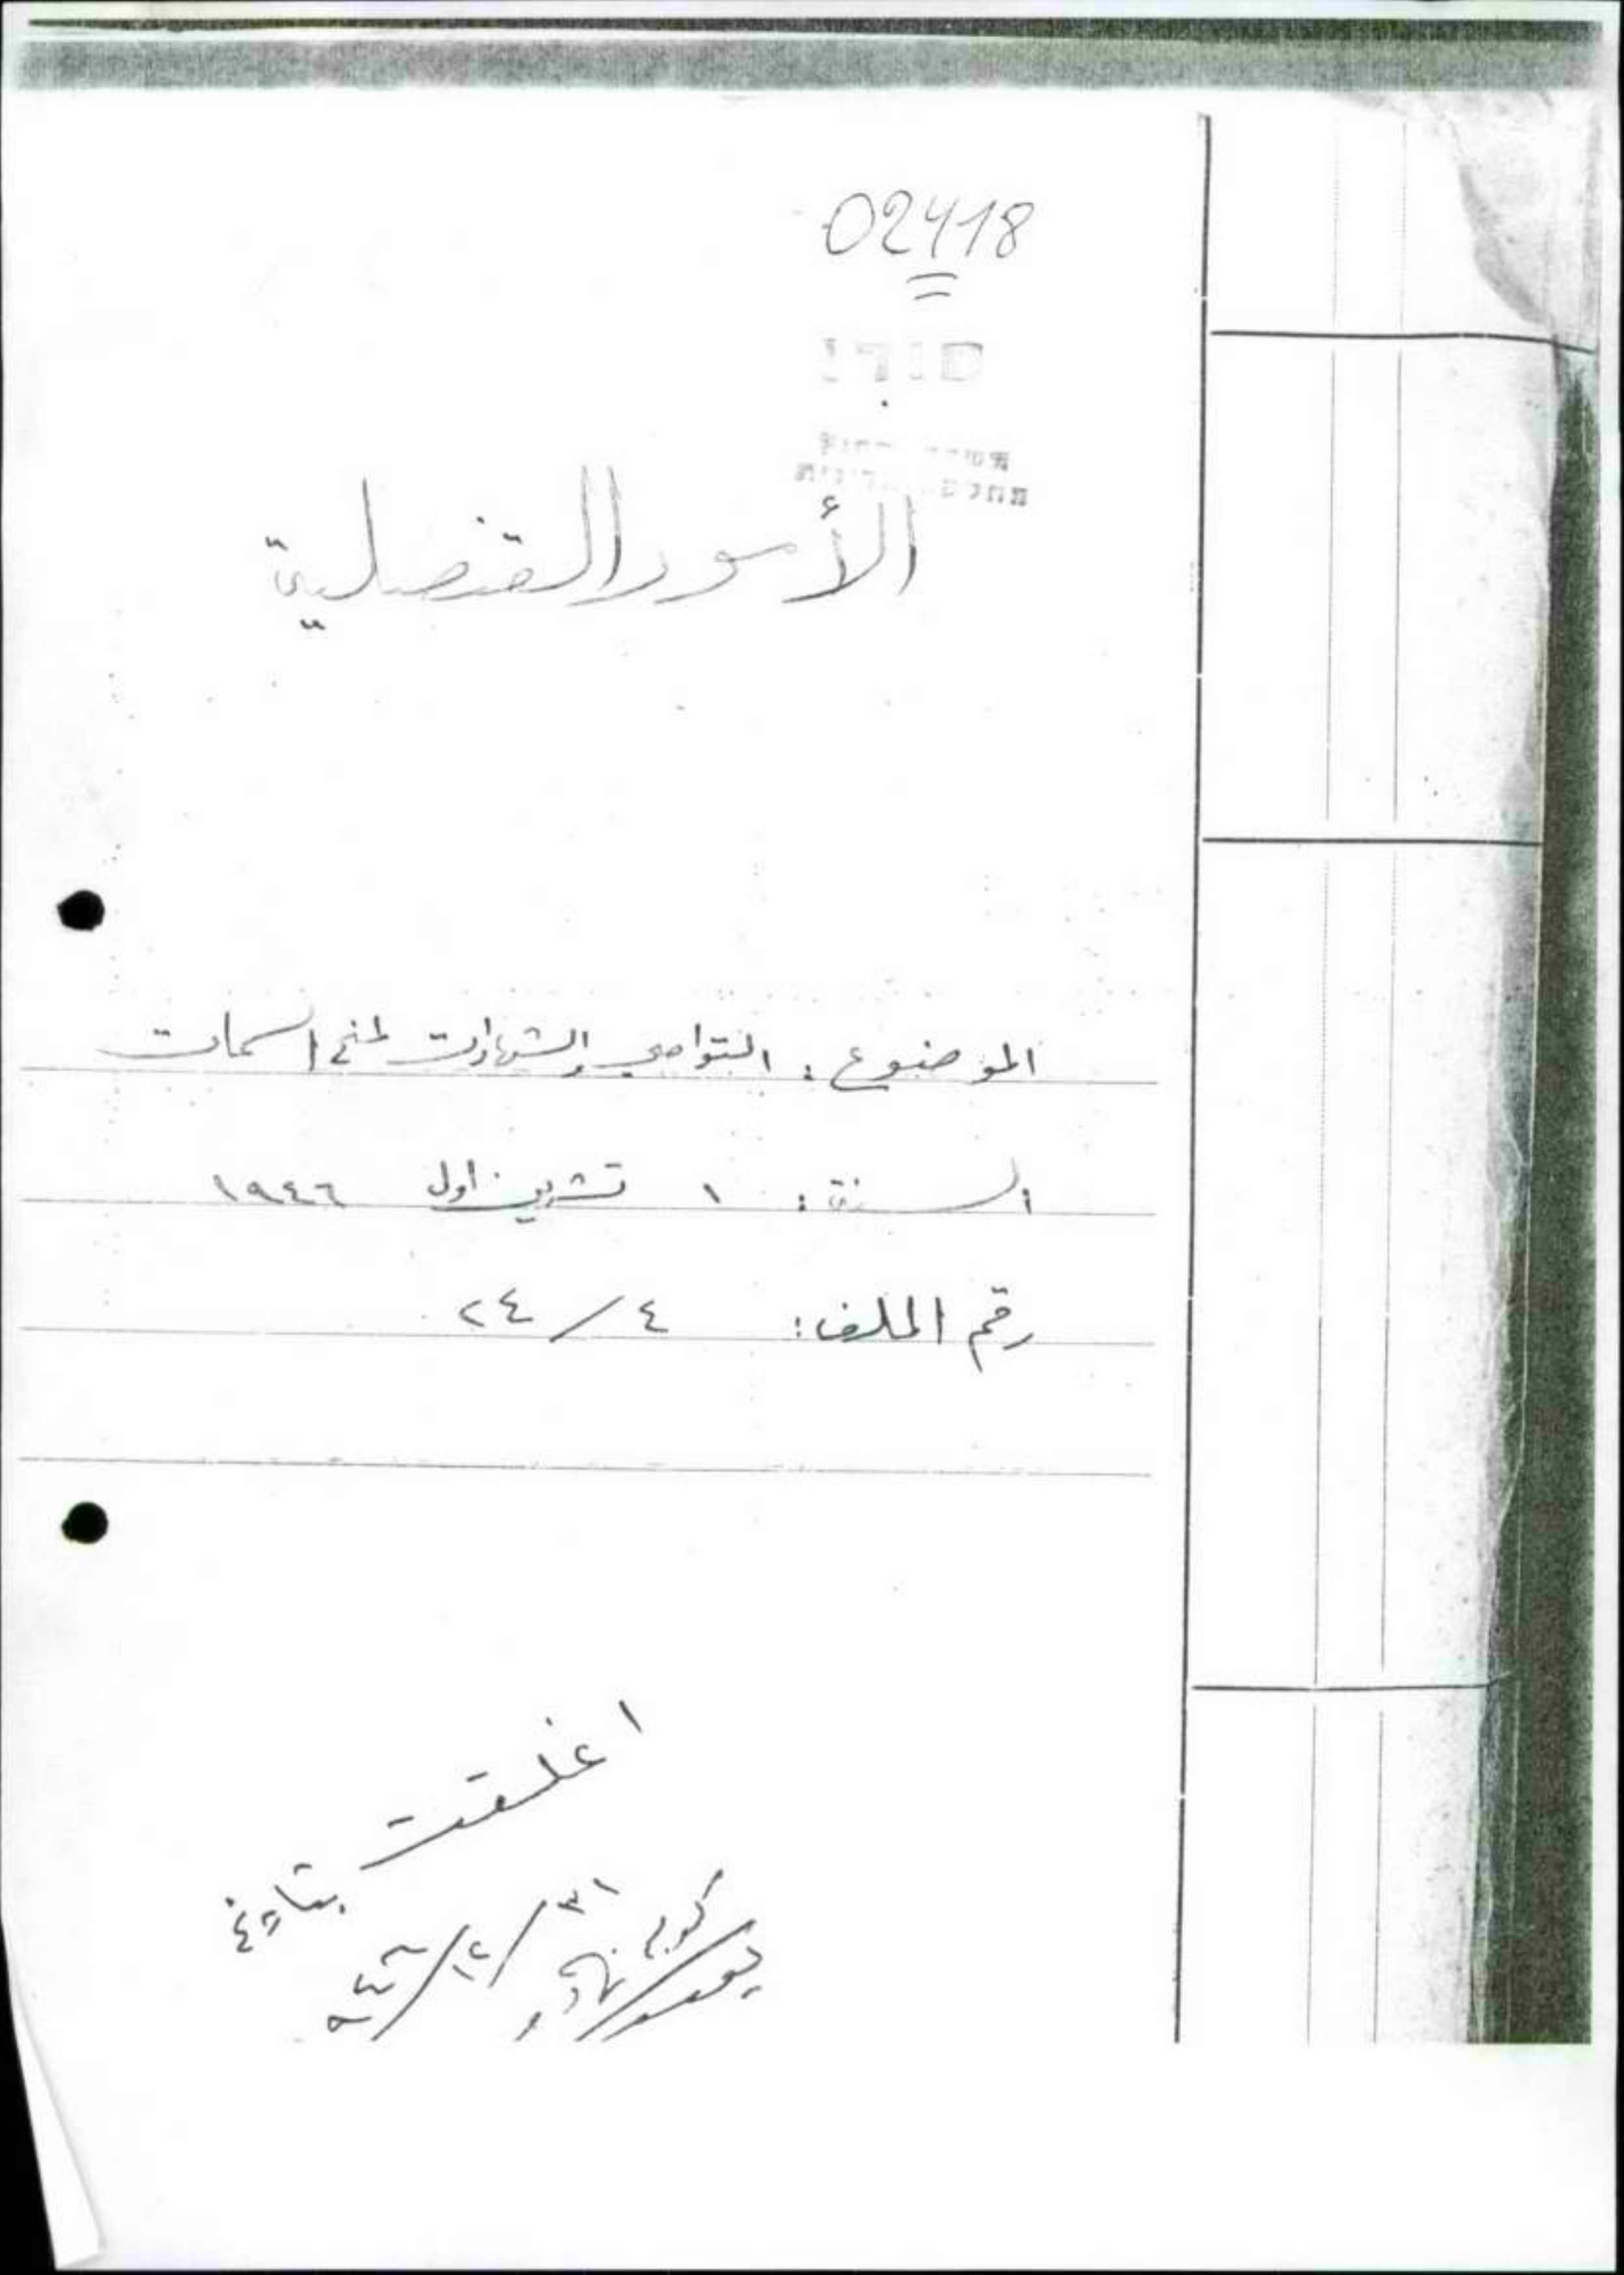 02418
الأمور القنصلية
الموضوع: التواصي والشهادات لمنح السمات
السنة: ١ تشرين اول ١٩٤٦
رقم الملف: ٤/٢٤
اغلقت
بتاريخ
٣١/١٢/٩٤٦